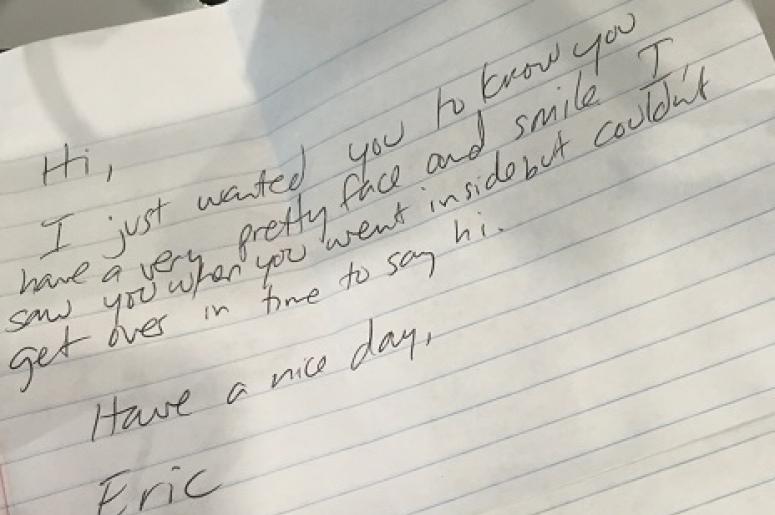 Hi,
I just wanted you to know you
have a very pretty face and smile I
saw you when you went inside but couldn't
get over in time to say hi.
Have a nice day,
Eric